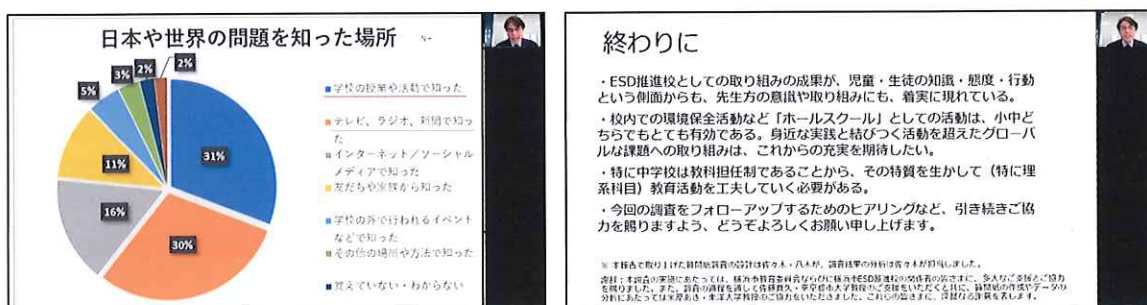 日本や世界の問題を知った場所
2%
2%
3%
5%
11%
16%
30%
31%
学校の授業や活動で知った
テレビ、ラジオ、新聞で知っ
た
インターネット／ソーシャル
メディアで知った
友だちや家族から知った
学校の外で行われるイベント
などで知った
その他の場所や方法で知った
覚えていない・わからない
終わりに
・ESD推進校としての取り組みの成果が、児童・生徒の知識・態度・行動
という側面からも、先生方の意識や取り組みにも、着実に現れている。
・校内での環境保全活動など「ホールスクール」としての活動は、小中ど
ちらでもとても有効である。身近な実践と結びつく活動を超えたグローバ
ルな課題への取り組みは、これからの充実を期待したい。
・特に中学校は教科担任制であることから、その特質を生かして（特に理
系科目）教育活動を工夫していく必要がある。
・今回の調査をフォローアップするためのヒアリングなど、引き続きご協
力を賜りますよう、どうぞよろしくお願い申し上げます。
※ 本報告で取り上げた質問紙調査の設計は佐々木・八木が、調査結果の分析は佐々木が担当しました。
謝辞：本調査の実施にあたっては、横浜市教育委員会ならびに横浜市ESD推進校の関係者の皆さまに、多大なご支援とご協力
を賜りました。また、調査の過程を通して佐藤真久・東京都市大学教授のご支援をいただくと共に、質問紙の作成やデータの
分析にあたっては米原あき・東洋大学教授のご協力をいただきました。これらの皆さまに、深甚なる謝意を表します。